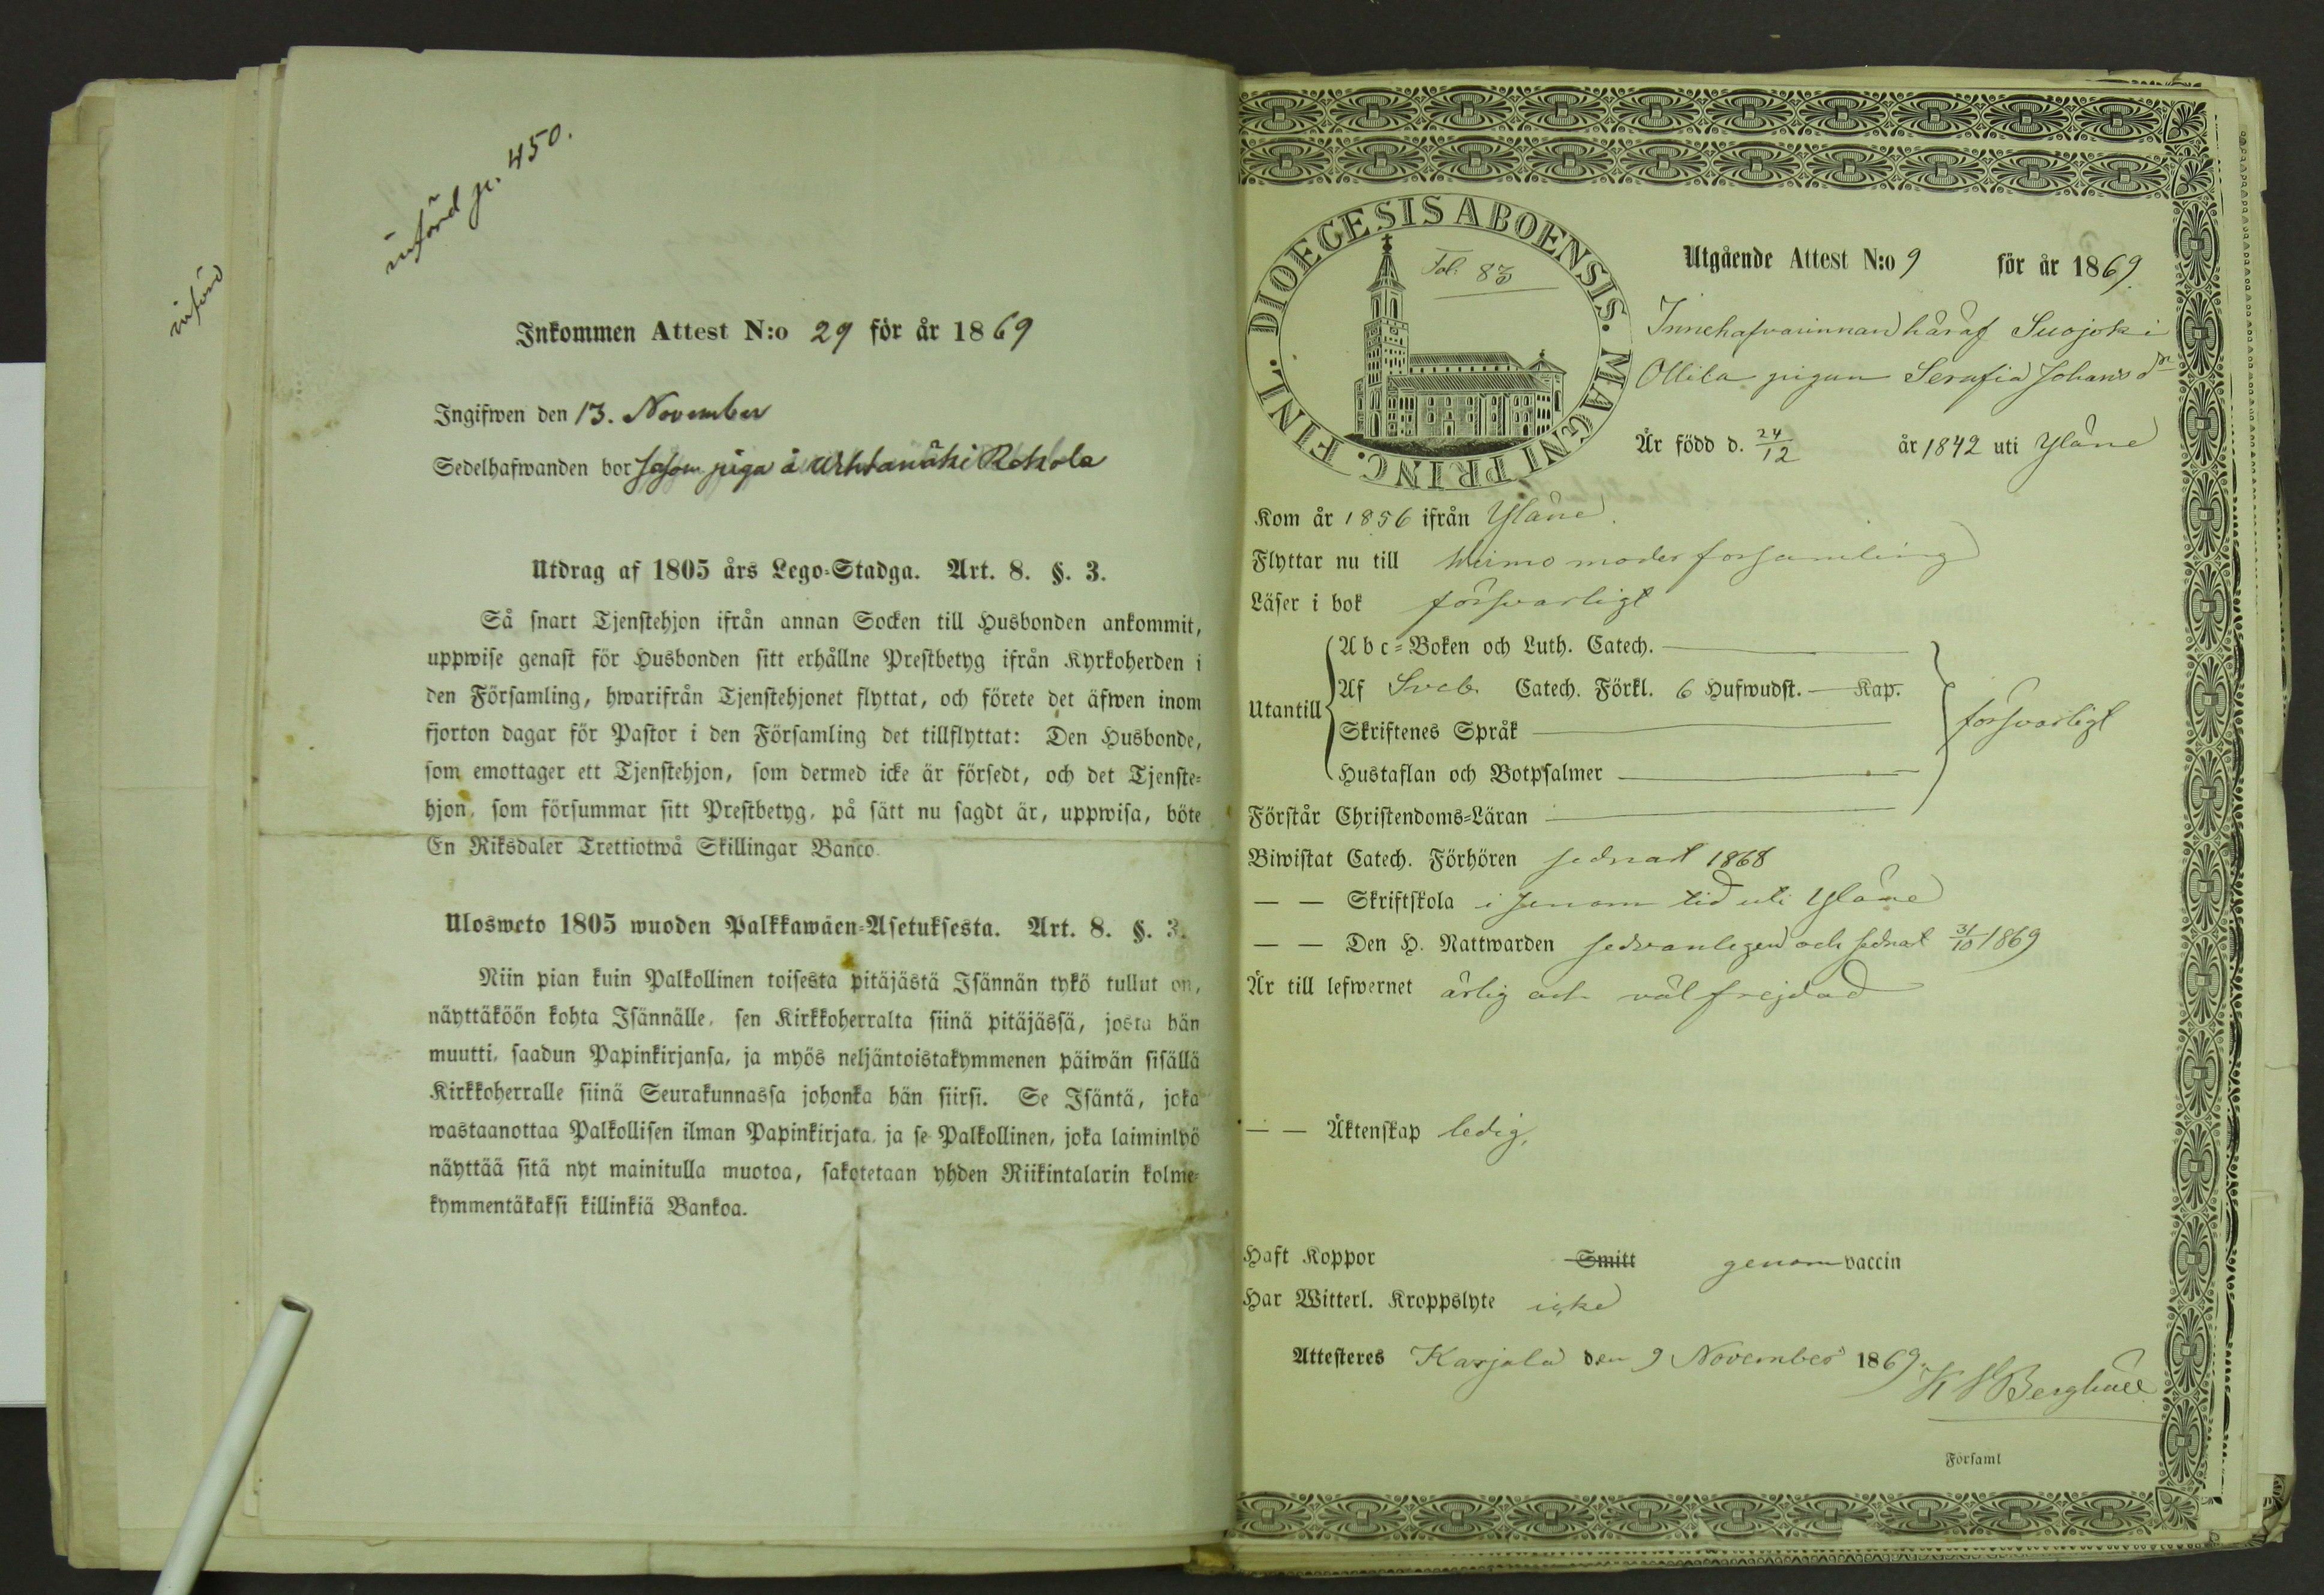 införd
införd p. 450.
Inkommen Attest N:o 29 för år 1869
Ingifwen den 13. November
Sedelhafwanden bor såsom piga å Rokola
Utdrag af 1805 års Lego-Stadga. Art. 8. §. 3.
Så snart Tjenstehjon ifrån annan Socken till Husbonden ankommit,
uppwise genast för Husbonden sitt erhållne Prestbetyg ifrån Kyrkoherden i
den Församling, hwarifrån Tjenstehjonet flyttat, och förete det äfwen inom
fjorton dagar för Pastor i den Församling det tillflyttat: Den Husbonde,
som emottager ett Tjenstehjon, som dermed icke är försedt, och det Tjenste-
hjon, som försummar sitt Prestbetyg, på sätt nu sagdt är, uppwisa, böte
En Riksdaler Trettiotwå Skillingar Banco.
Ulosweto 1805 wuoden Palkkawäen-Asetuksesta. Art. 8. §. 3.
Niin pian kuin Palkollinen toisesta pitäjästä Isännän tykö tullut on,
näyttäköön kohta Isännälle, sen Kirkkoherralta siinä pitäjässä, josta hän
muutti, saadun Papinkirjansa, ja myös neljäntoistakymmenen päiwän sisällä
Kirkkoherralle siinä Seurakunnassa johonka hän siirsi. Se Isäntä, joka
wastaanottaa Palkollisen ilman Papinkirjata, ja se Palkollinen, joka laiminlyö
näyttää sitä nyt mainitulla muotoa, sakotetaan yhden Riikintalarin kolme-
kymmentäkaksi killinkiä Bankoa.
DIOECESIS ABOENSIS. MAGNI PRINC. FINL.
Fol. 83
Utgående Attest N:o 9 för år 1869.
Innehafvarinnan häraf Suojoki
Ollila pigan Serafia Johansdr
Är född d. 24/12 år 1842 uti Yläne
Kom år 1856 ifrån Yläne.
Flyttar nu till Wirmo moder församling
Läser i bok försvarligt
Utantill
Abc-Boken och Luth. Catech.
Af Sveb. Catech. Förkl. 6 Hufwudst. — Kap.
Skriftenes Språk
Hustaflan och Botpsalmer
försvarligt
Förstår Christendoms-Läran
Biwistat Catech. Förhören sednast 1868
— — Skriftskola i sinom tid uti Yläne
— — Den H. Nattwarden sedvanligen och sednast 31/10 1869
Är till lefwernet ärlig och väl frejdad
— — Äktenskap ledig.
Haft Koppor Smitt genom vaccin
Har Witterl. Kroppslyte icke
Attesteres Karjala den 9 November 1869.
Berghäll
Församl